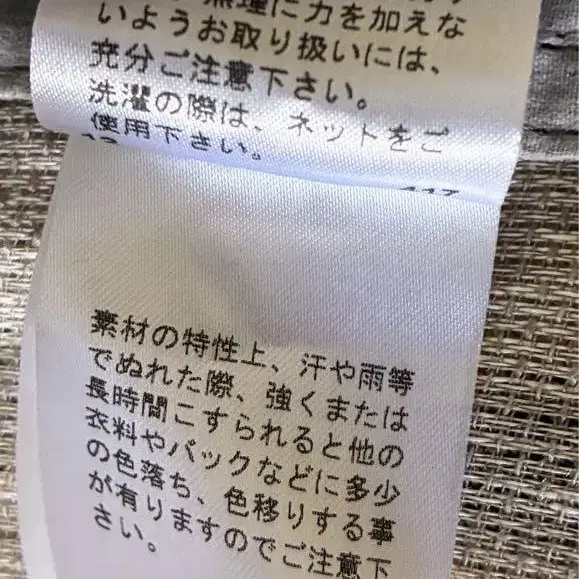 無理に力を加えな
いようお取り扱いには、
充分ご注意下さい。
洗濯の際は、ネットをご
使用下さい。
素材の特性上、汗や雨等
でぬれた際、強くまたは
長時間こすられると他の
衣料やバックなどに多少
の色落ち、色移りする事
が有りますのでご注意下
さい。